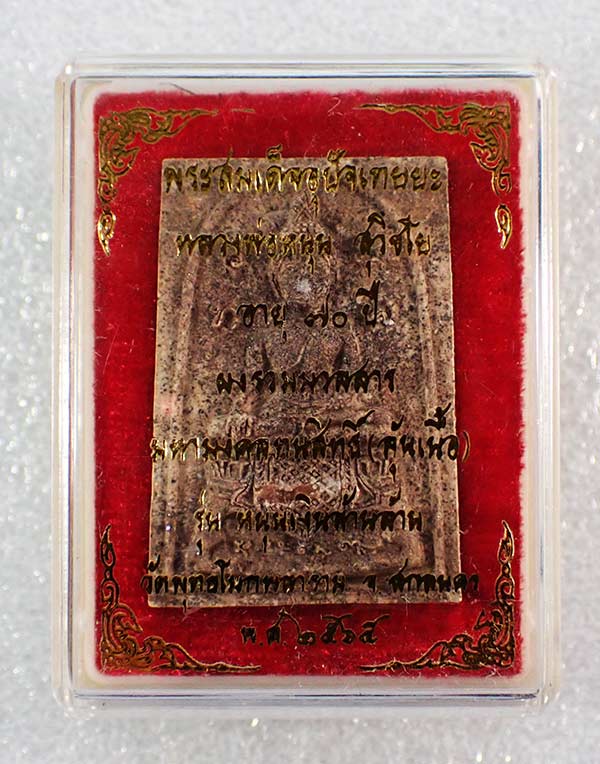 พระสมเด็จอุปัจเทยยะ
หลวงพ่อหนุน สุวิชโย
อายุ ๗๐ ปี
ผงรวมมวลสาร
มหามงคลทนสิทธิ์ (ลุ้นเนื้อ)
รุ่น หนุนเงินล้านล้าน
วัดพุทธโมกพลาราม จ. สกลนคร
พ.ศ. ๒๕๖๕